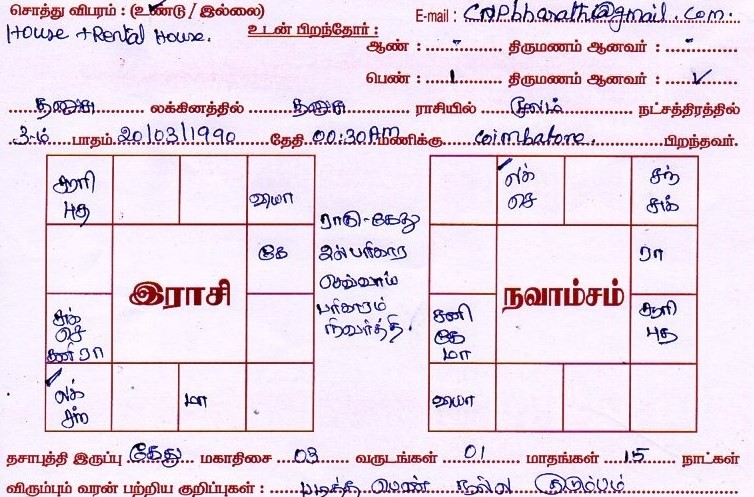 சொத்து விபரம் : (உண்டு / இல்லை)
House + Rental House.
E-mail : CNPbharath@gmail.com.
உடன் பிறந்தோர் :
ஆண் : - திருமணம் ஆனவர் : -
பெண் : 1 திருமணம் ஆனவர் : ✓
தனுசு லக்கினத்தில் தனுசு ராசியில் மூலம் நட்சத்திரத்தில்
3-ம் பாதம் 20/03/1990 தேதி 00:30AM மணிக்கு Coimbatore. பிறந்தவர்.
சூரி
புத
கே
இராசி
சுக்
செ
சனி ரா
லக்
சந்
மா
ராகு-கேது
பரிகார
செய்வாம்
பரிகாரம்
நிவர்த்தி.
லக்
செ
சந்
சுக்
ரா
நவாம்சம்
சனி
கே
மா
சூரி
புத
தசாபுத்தி இருப்பு கேது மகாதிசை 03 வருடங்கள் 01 மாதங்கள் 15 நாட்கள்
விரும்பும் வரன் பற்றிய குறிப்புகள் : படித்த பெண் நல்ல குடும்பம்